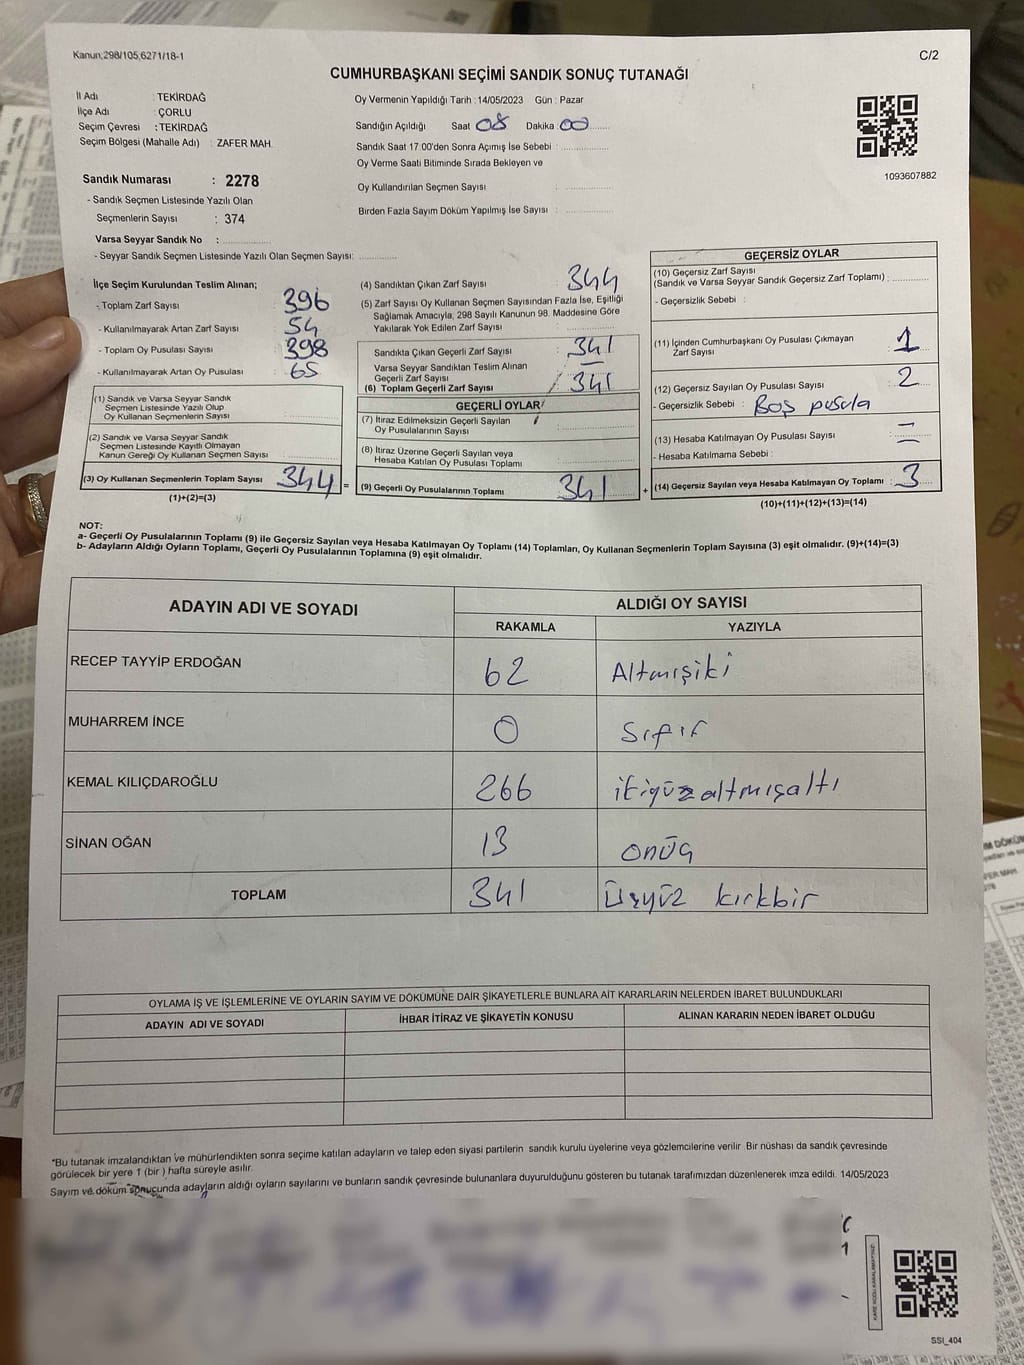 Kanun;298/105,6271/18-1
C/2
CUMHURBAŞKANI SEÇİMİ SANDIK SONUÇ TUTANAĞI
İl Adı : TEKİRDAĞ
İlçe Adı : ÇORLU
Seçim Çevresi : TEKİRDAĞ
Seçim Bölgesi (Mahalle Adı) : ZAFER MAH.
Sandık Numarası : 2278
- Sandık Seçmen Listesinde Yazılı Olan
Seçmenlerin Sayısı : 374
Varsa Seyyar Sandık No :
- Seyyar Sandık Seçmen Listesinde Yazılı Olan Seçmen Sayısı:
Oy Vermenin Yapıldığı Tarih : 14/05/2023 Gün : Pazar
Sandığın Açıldığı Saat 08 Dakika : 00
Sandık Saat 17:00'den Sonra Açımış İse Sebebi :
Oy Verme Saati Bitiminde Sırada Bekleyen ve
Oy Kullandırılan Seçmen Sayısı :
Birden Fazla Sayım Döküm Yapılmış İse Sayısı :
1093607882
İlçe Seçim Kurulundan Teslim Alınan;
- Toplam Zarf Sayısı 396
- Kullanılmayarak Artan Zarf Sayısı 54
- Toplam Oy Pusulası Sayısı 398
- Kullanılmayarak Artan Oy Pusulası : 65
(1) Sandık ve Varsa Seyyar Sandık
Seçmen Listesinde Yazılı Olup
Oy Kullanan Seçmenlerin Sayısı :
(2) Sandık ve Varsa Seyyar Sandık
Seçmen Listesinde Kayıtlı Olmayan
Kanun Gereği Oy Kullanan Seçmen Sayısı :
(3) Oy Kullanan Seçmenlerin Toplam Sayısı : 344 =
(1)+(2)=(3)
(4) Sandıktan Çıkan Zarf Sayısı : 344
(5) Zarf Sayısı Oy Kullanan Seçmen Sayısından Fazla İse, Eşitliği
Sağlamak Amacıyla, 298 Sayılı Kanunun 98. Maddesine Göre
Yakılarak Yok Edilen Zarf Sayısı :
Sandıkta Çıkan Geçerli Zarf Sayısı : 341
Varsa Seyyar Sandıktan Teslim Alınan
Geçerli Zarf Sayısı : —
(6) Toplam Geçerli Zarf Sayısı : 341
GEÇERLİ OYLAR
(7) İtiraz Edilmeksizin Geçerli Sayılan
Oy Pusulalarının Sayısı :
(8) İtiraz Üzerine Geçerli Sayılan veya
Hesaba Katılan Oy Pusulası Toplamı :
(9) Geçerli Oy Pusulalarının Toplamı : 341 +
GEÇERSİZ OYLAR
(10) Geçersiz Zarf Sayısı
(Sandık ve Varsa Seyyar Sandık Geçersiz Zarf Toplamı) :
- Geçersizlik Sebebi :
(11) İçinden Cumhurbaşkanı Oy Pusulası Çıkmayan
Zarf Sayısı : 1
(12) Geçersiz Sayılan Oy Pusulası Sayısı : 2
- Geçersizlik Sebebi : Boş pusula
(13) Hesaba Katılmayan Oy Pusulası Sayısı : —
- Hesaba Katılmama Sebebi : —
(14) Geçersiz Sayılan veya Hesaba Katılmayan Oy Toplamı : 3
(10)+(11)+(12)+(13)=(14)
NOT:
a- Geçerli Oy Pusulalarının Toplamı (9) ile Geçersiz Sayılan veya Hesaba Katılmayan Oy Toplamı (14) Toplamları, Oy Kullanan Seçmenlerin Toplam Sayısına (3) eşit olmalıdır. (9)+(14)=(3)
b- Adayların Aldığı Oyların Toplamı, Geçerli Oy Pusulalarının Toplamına (9) eşit olmalıdır.
ADAYIN ADI VE SOYADI ALDIĞI OY SAYISI
RAKAMLA YAZIYLA
RECEP TAYYİP ERDOĞAN 62 Altmışiki
MUHARREM İNCE 0 sıfır
KEMAL KILIÇDAROĞLU 266 ikiyüzaltmışaltı
SİNAN OĞAN 13 onüç
TOPLAM 341 üçyüz kırkbir
OYLAMA İŞ VE İŞLEMLERİNE VE OYLARIN SAYIM VE DÖKÜMÜNE DAİR ŞİKAYETLERLE BUNLARA AİT KARARLARIN NELERDEN İBARET BULUNDUKLARI
ADAYIN ADI VE SOYADI İHBAR İTİRAZ VE ŞİKAYETİN KONUSU ALINAN KARARIN NEDEN İBARET OLDUĞU
*Bu tutanak imzalandıktan ve mühürlendikten sonra seçime katılan adayların ve talep eden siyasi partilerin sandık kurulu üyelerine veya gözlemcilerine verilir. Bir nüshası da sandık çevresinde
görülecek bir yere 1 (bir ) hafta süreyle asılır.
Sayım ve döküm sonucunda adayların aldığı oyların sayılarını ve bunların sandık çevresinde bulunanlara duyurulduğunu gösteren bu tutanak tarafımızdan düzenlenerek imza edildi. 14/05/2023
KARE KODU KARALAMAYINIZ
SSI_404